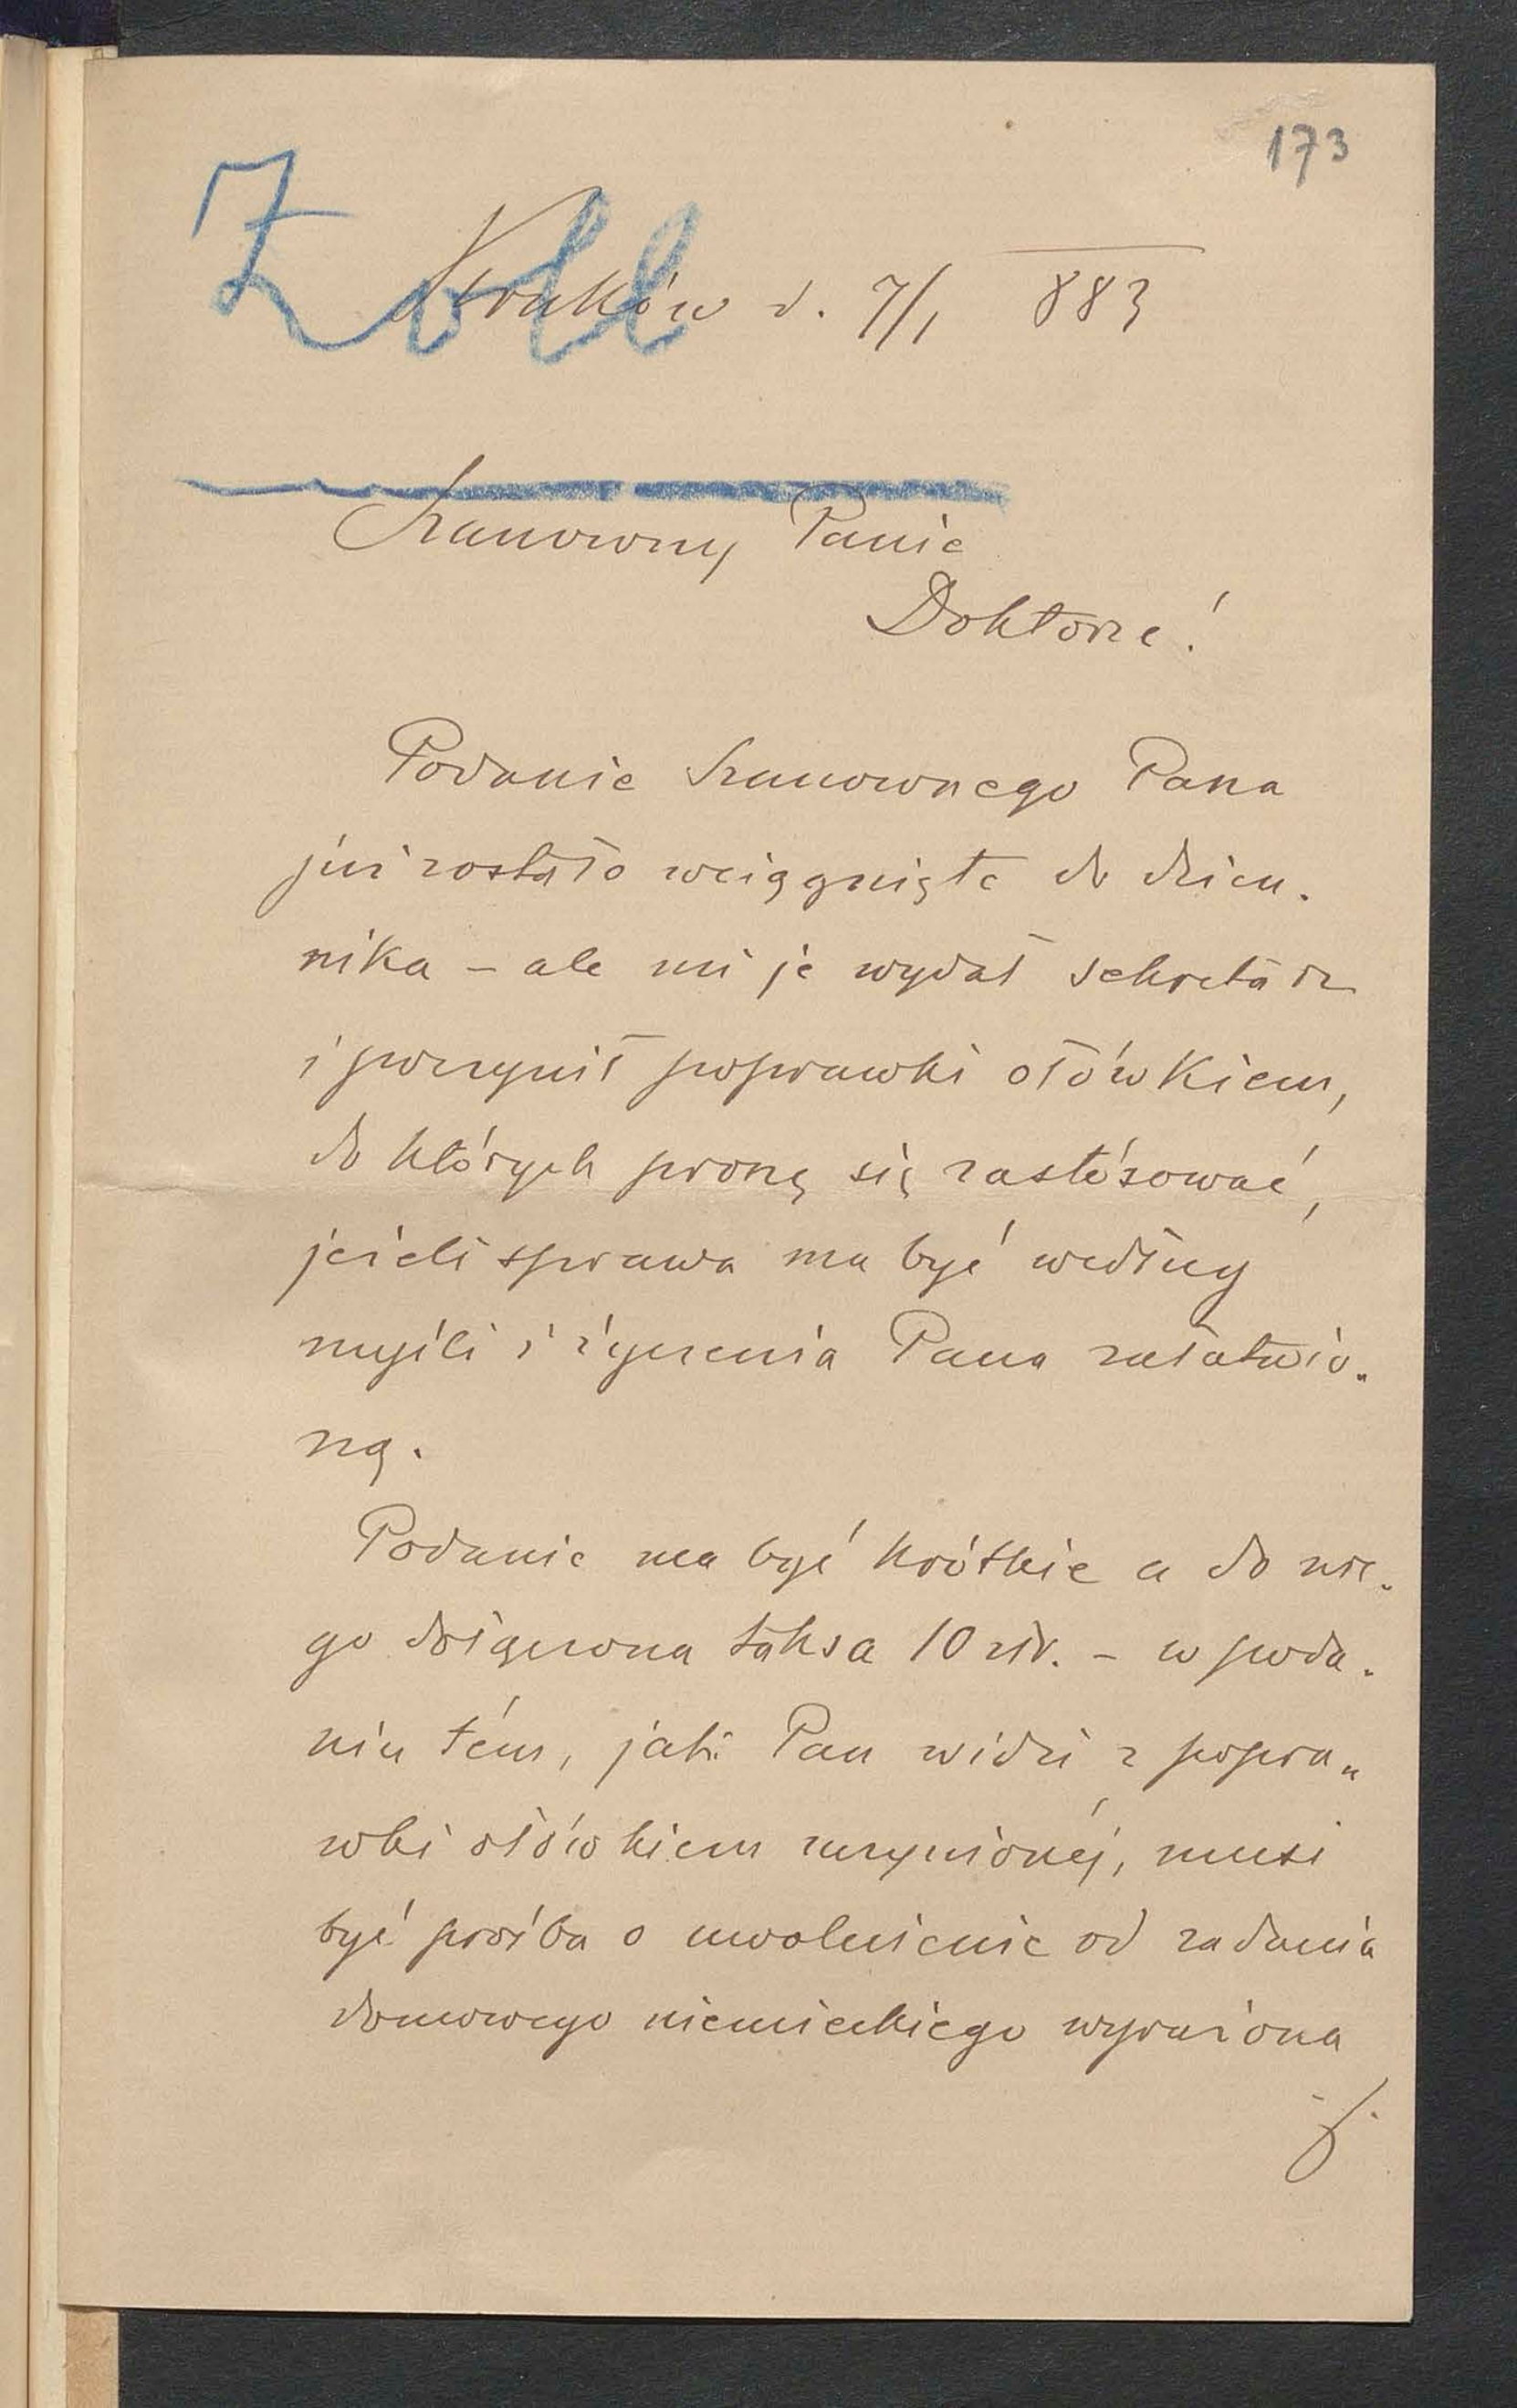 173
Zoll
Kraków d. 7/1 883
Szanowny Panie
Doktorze!
Podanie Szanownego Pana
już zostało wciągnięte do dzien„
nika – ale mi je wydał sekretarz
i poczynił poprawki ołówkiem,
do których proszę się zastósować,
jeżeli sprawa ma być według
myśli i życzenia Pana załatwio„
ną.
Podanie ma być krótkie a do nie„
go dołączona taksa 10 złr. – w poda„
niu tém, jak Pan widzi z popra„
wki ołówkiem uczynionéj, musi
być prośba o uwolnienie od zadania
domowego niemieckiego wyrażona